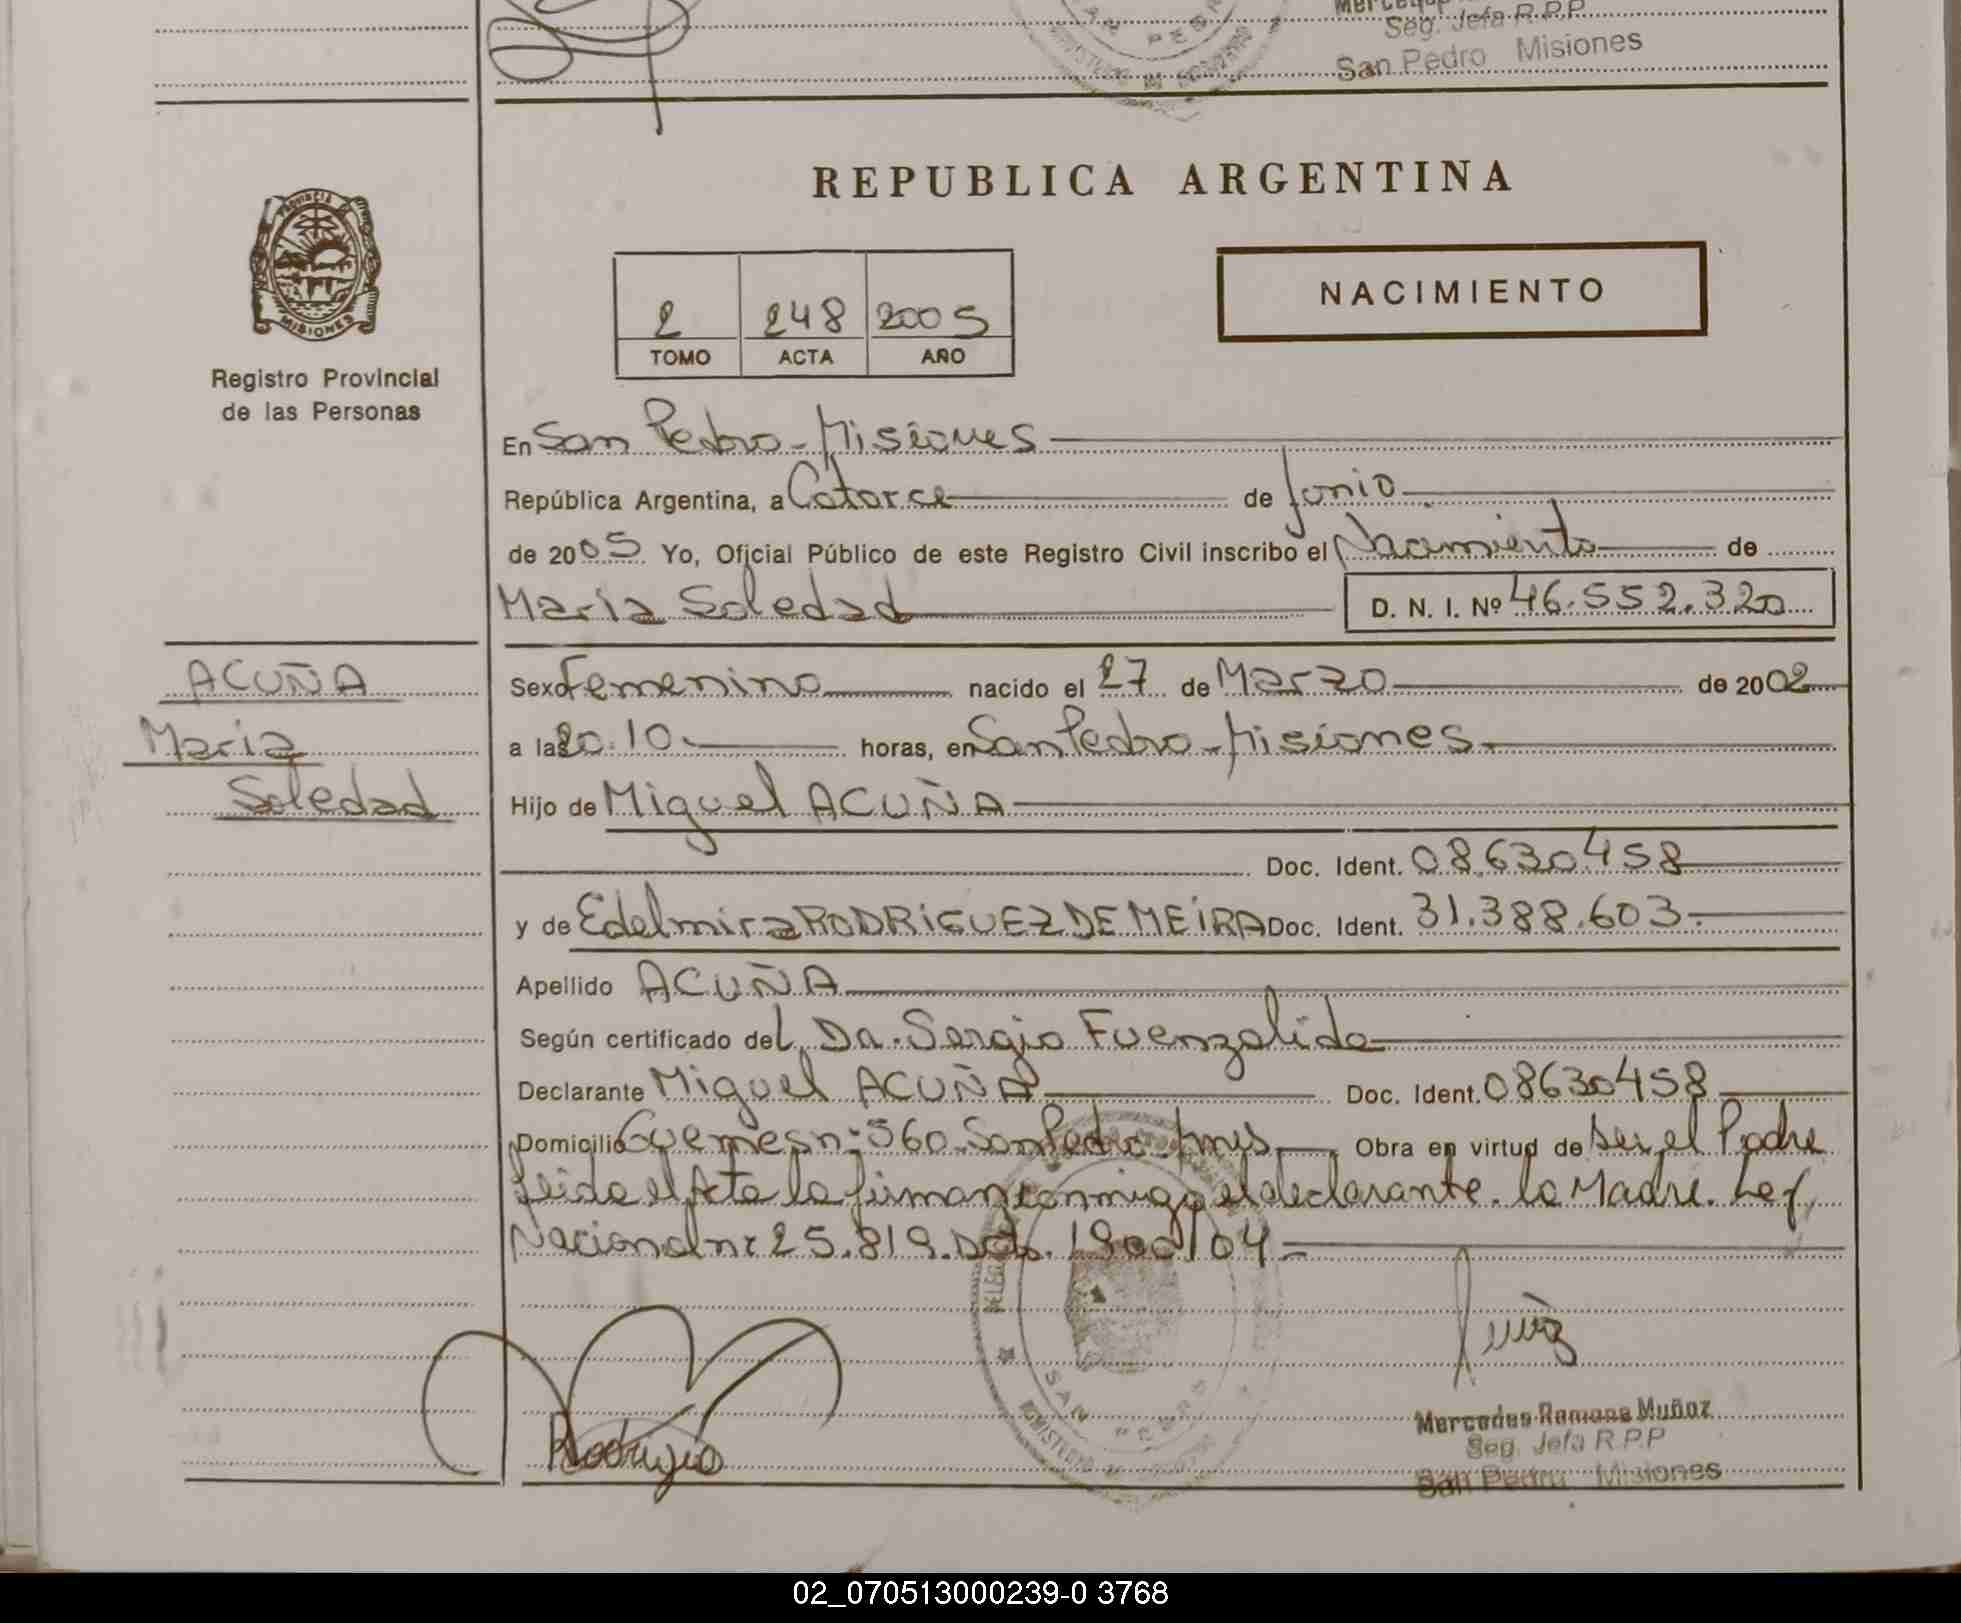 Seg. Jefa R.P.P
San Pedro Misiones
REPUBLICA ARGENTINA
PROVINCIA DE
MISIONES
Registro Provincial
de las Personas
NACIMIENTO
2 248 2005
TOMO ACTA AÑO
En San Pedro - Misiones
República Argentina, a Catorce de Junio
de 2005 Yo, Oficial Público de este Registro Civil inscribo el Nacimiento de
María Soledad D. N. I. Nº 46.552.320
ACUÑA
Maria
Soledad
Sexo Femenino nacido el 27 de Marzo de 2002
a las 20.10 horas, en San Pedro - Misiones
Hijo de Miguel ACUÑA
Doc. Ident. 08630458
y de Edelmira RODRIGUEZ DE MEIRA Doc. Ident. 31.388.603
Apellido ACUÑA
Según certificado del Dr. Sergio Fuenzalida
Declarante Miguel ACUÑA Doc. Ident. 08630458
Domicilio Guemes nº 560 San Pedro Mnes Obra en virtud de ser el Padre
Leida el Acta la firman conmigo el declarante. la Madre. Ley
Nacional nº 25.819. Dcto. 1900/04
SAN PEDRO
Rodrigio
Mercedes Ramona Muñoz
Seg. Jefa R.P.P
San Pedro Misiones
02_070513000239-0 3768